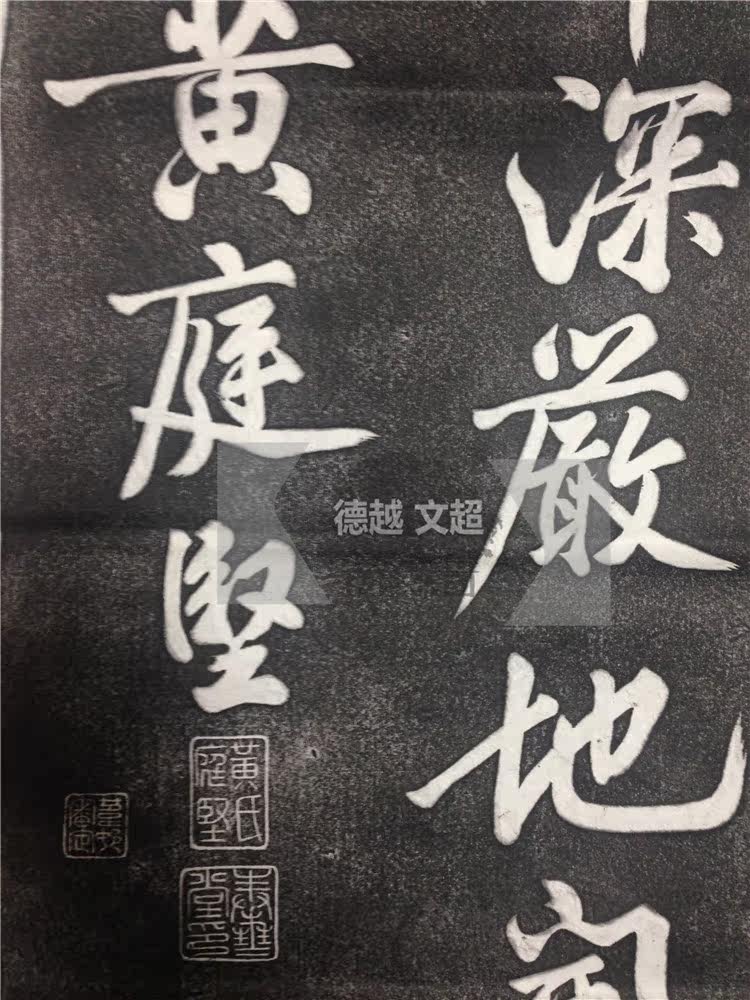 深嚴地
黄庭堅
黃氏庭堅
德越 文超